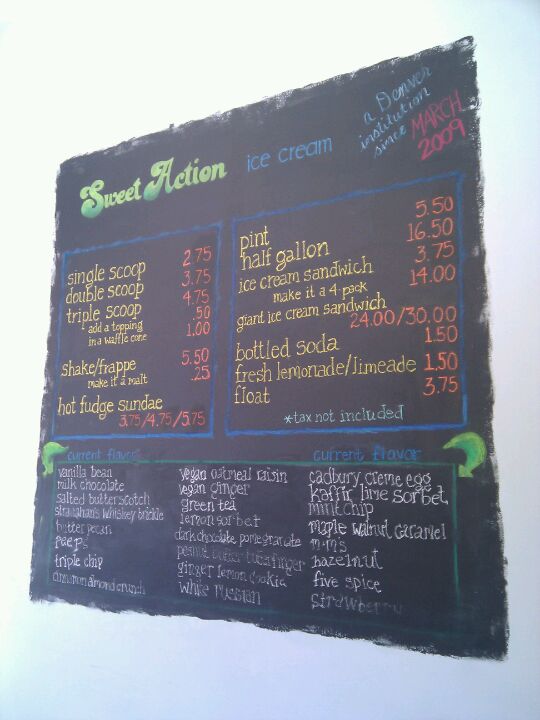 Sweet Action ice cream
a Denver
institution
since MARCH
2009
single scoop 2.75
double scoop 3.75
triple scoop 4.75
add a topping .50
in a waffle cone 1.00
shake/frappe 5.50
make it a malt .25
hot fudge sundae
3.75/4.75/5.75
pint 5.50
half gallon 16.50
ice cream sandwich 3.75
make it a 4-pack 14.00
giant ice cream sandwich
24.00/30.00
bottled soda 1.50
fresh lemonade/limeade 1.50
float 3.75
*tax not included
current flavor
vanilla bean
milk chocolate
salted butterscotch
stranahan's whiskey brickle
butter pecan
peeps
triple chip
cinnamon almond crunch
vegan oatmeal raisin
vegan ginger
green tea
lemon sorbet
dark chocolate pomegranate
peanut butter
ginger lemon cookie
white russian
current flavor
cadbury creme egg
kaffir lime sorbet
mint chip
maple walnut caramel
m.m's
hazelnut
five spice
strawberry